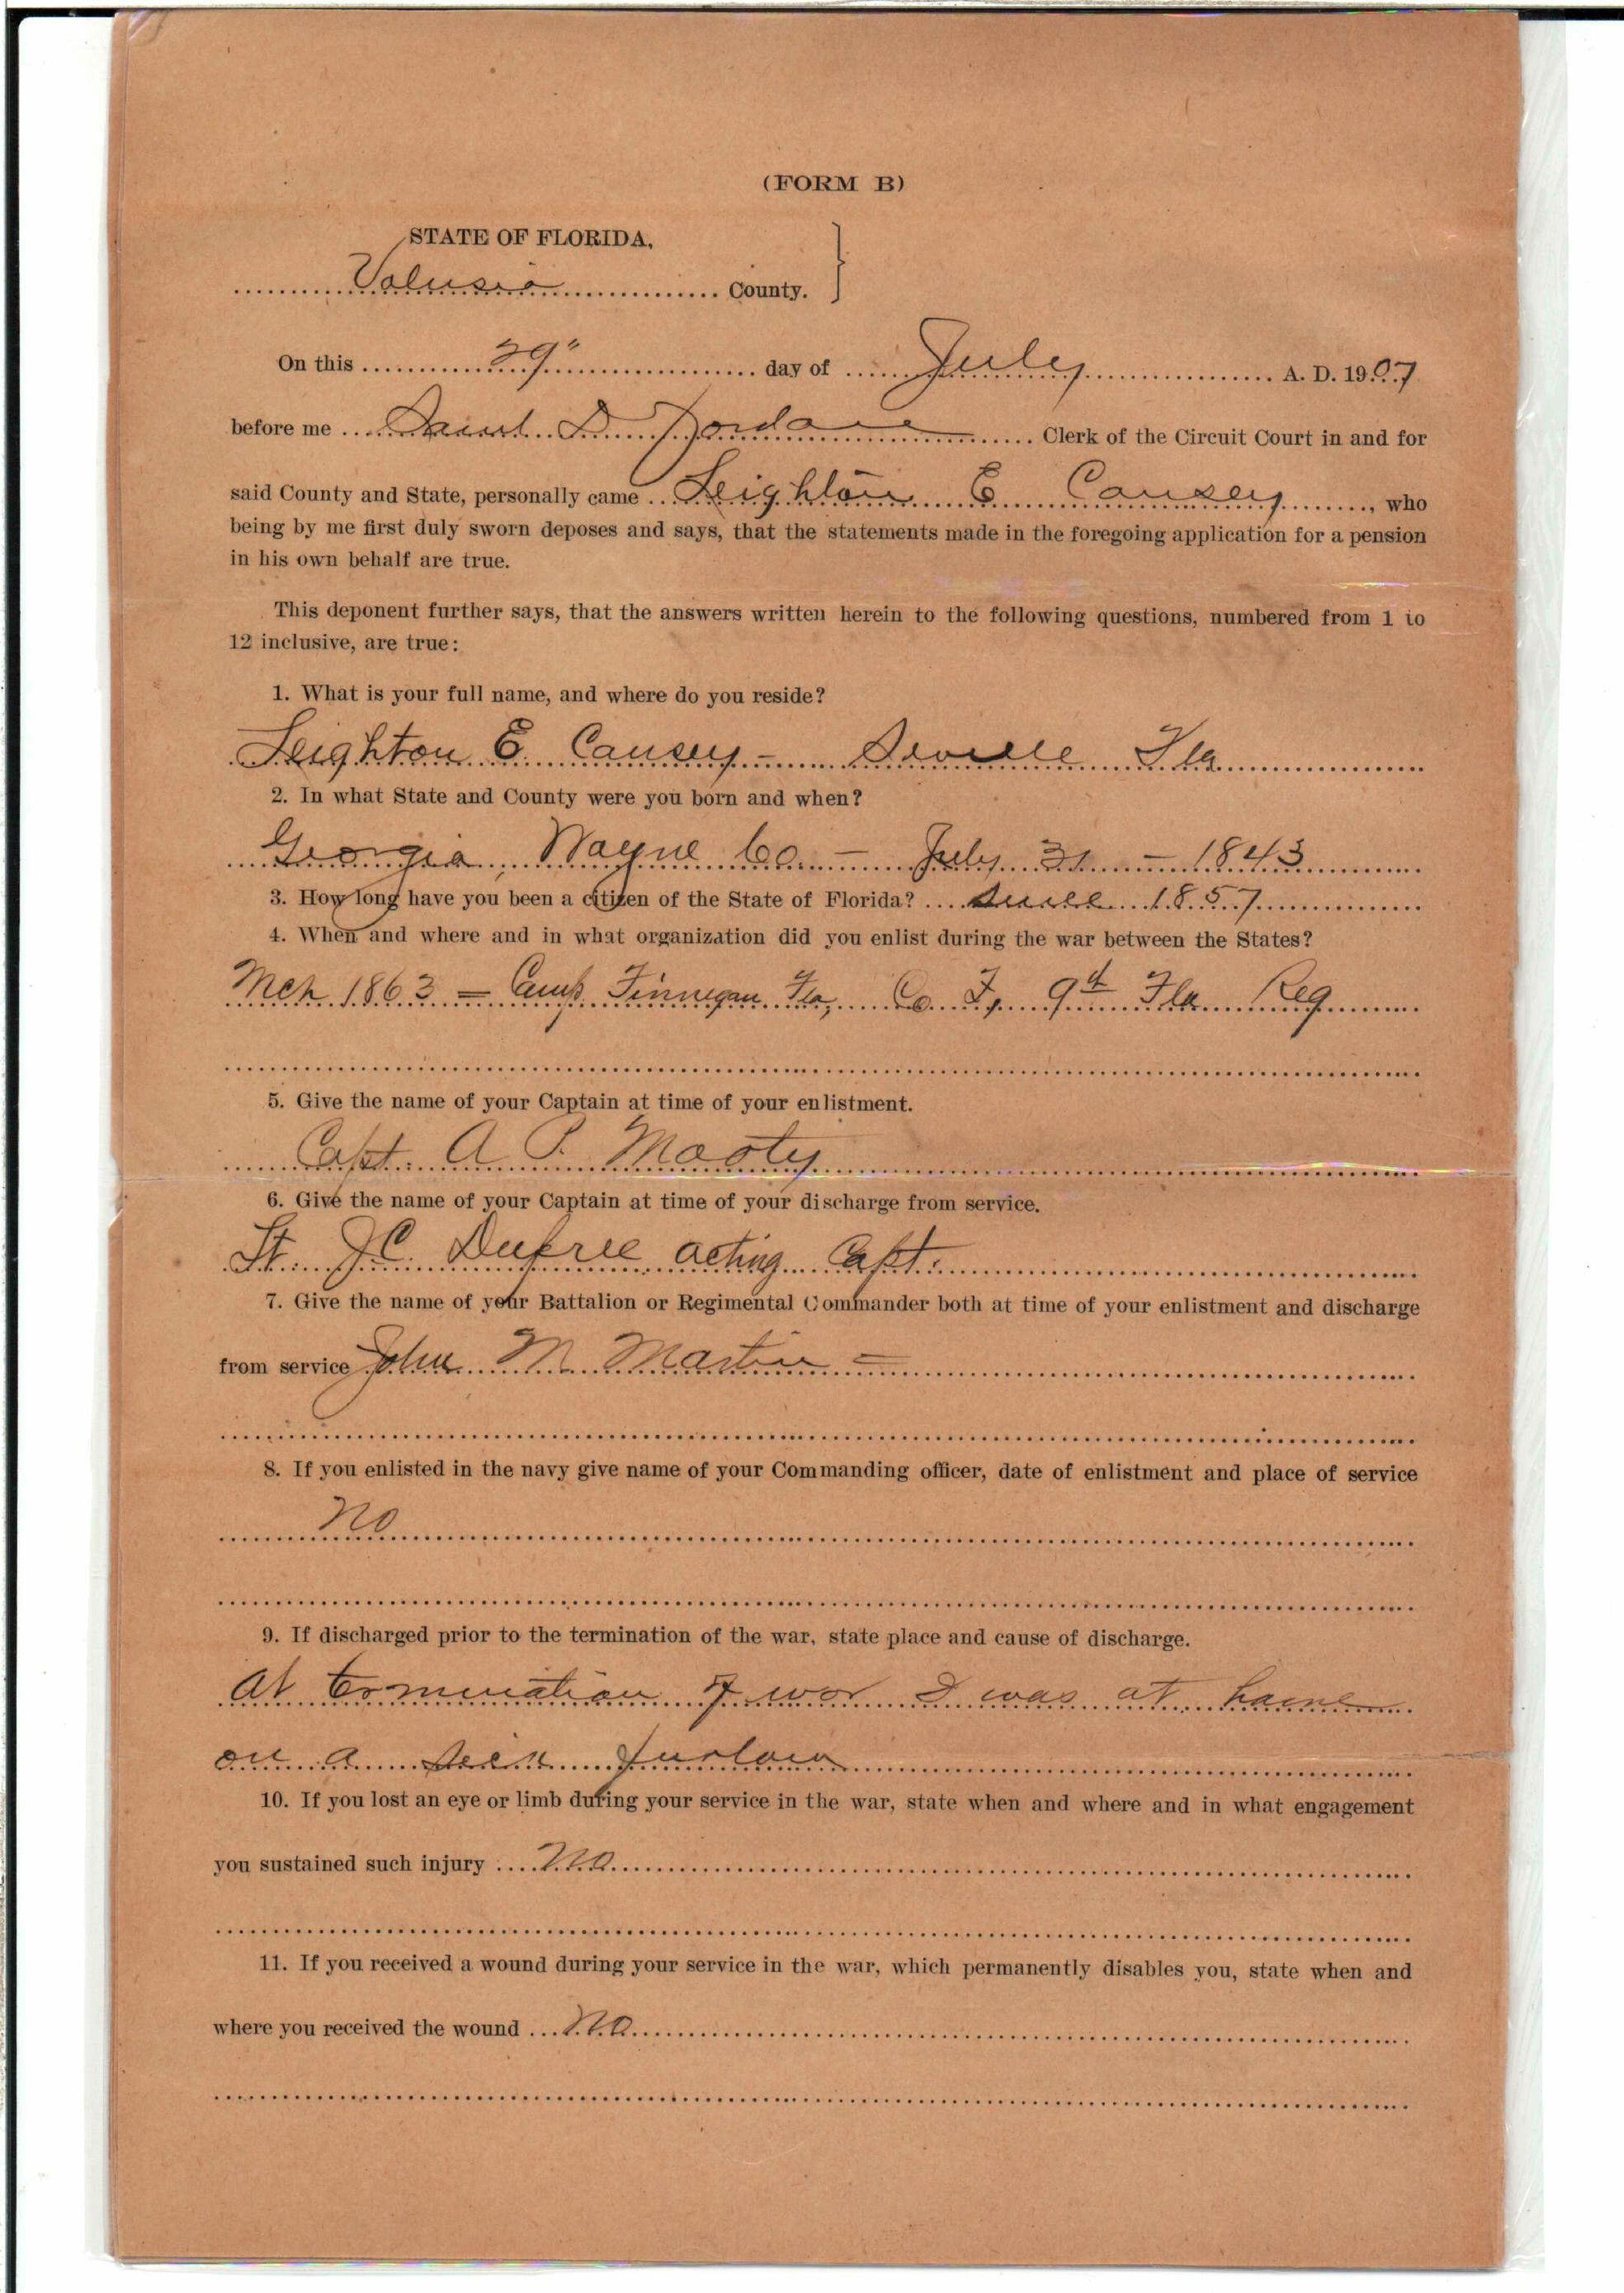 (FORM B)
STATE OF FLORIDA,
Volusia County.
On this 29" day of July A. D. 1907
before me Saml D. Jordan Clerk of the Circuit Court in and for
said County and State, personally came Leighton E Causey, who
being by me first duly sworn deposes and says, that the statements made in the foregoing application for a pension
in his own behalf are true.
This deponent further says, that the answers written herein to the following questions, numbered from 1 to
12 inclusive, are true:
1. What is your full name, and where do you reside?
Leighton E. Causey - Seville Fla
2. In what State and County were you born and when?
Georgia, Wayne Co. - July 31 - 1843
3. How long have you been a citizen of the State of Florida? Since 1857
4. When and where and in what organization did you enlist during the war between the States?
Mch 1863 = Camp Finnegan Fla, Co. F, 9th Fla Reg
5. Give the name of your Captain at time of your enlistment.
Capt. A P. Mooty
6. Give the name of your Captain at time of your discharge from service.
Lt. J C. Dupree acting Capt.
7. Give the name of your Battalion or Regimental Commander both at time of your enlistment and discharge
from service John M Martin =
8. If you enlisted in the navy give name of your Commanding officer, date of enlistment and place of service
No
9. If discharged prior to the termination of the war, state place and cause of discharge.
At termination of war I was at home
on a sick furlow
10. If you lost an eye or limb during your service in the war, state when and where and in what engagement
you sustained such injury No
11. If you received a wound during your service in the war, which permanently disables you, state when and
where you received the wound No